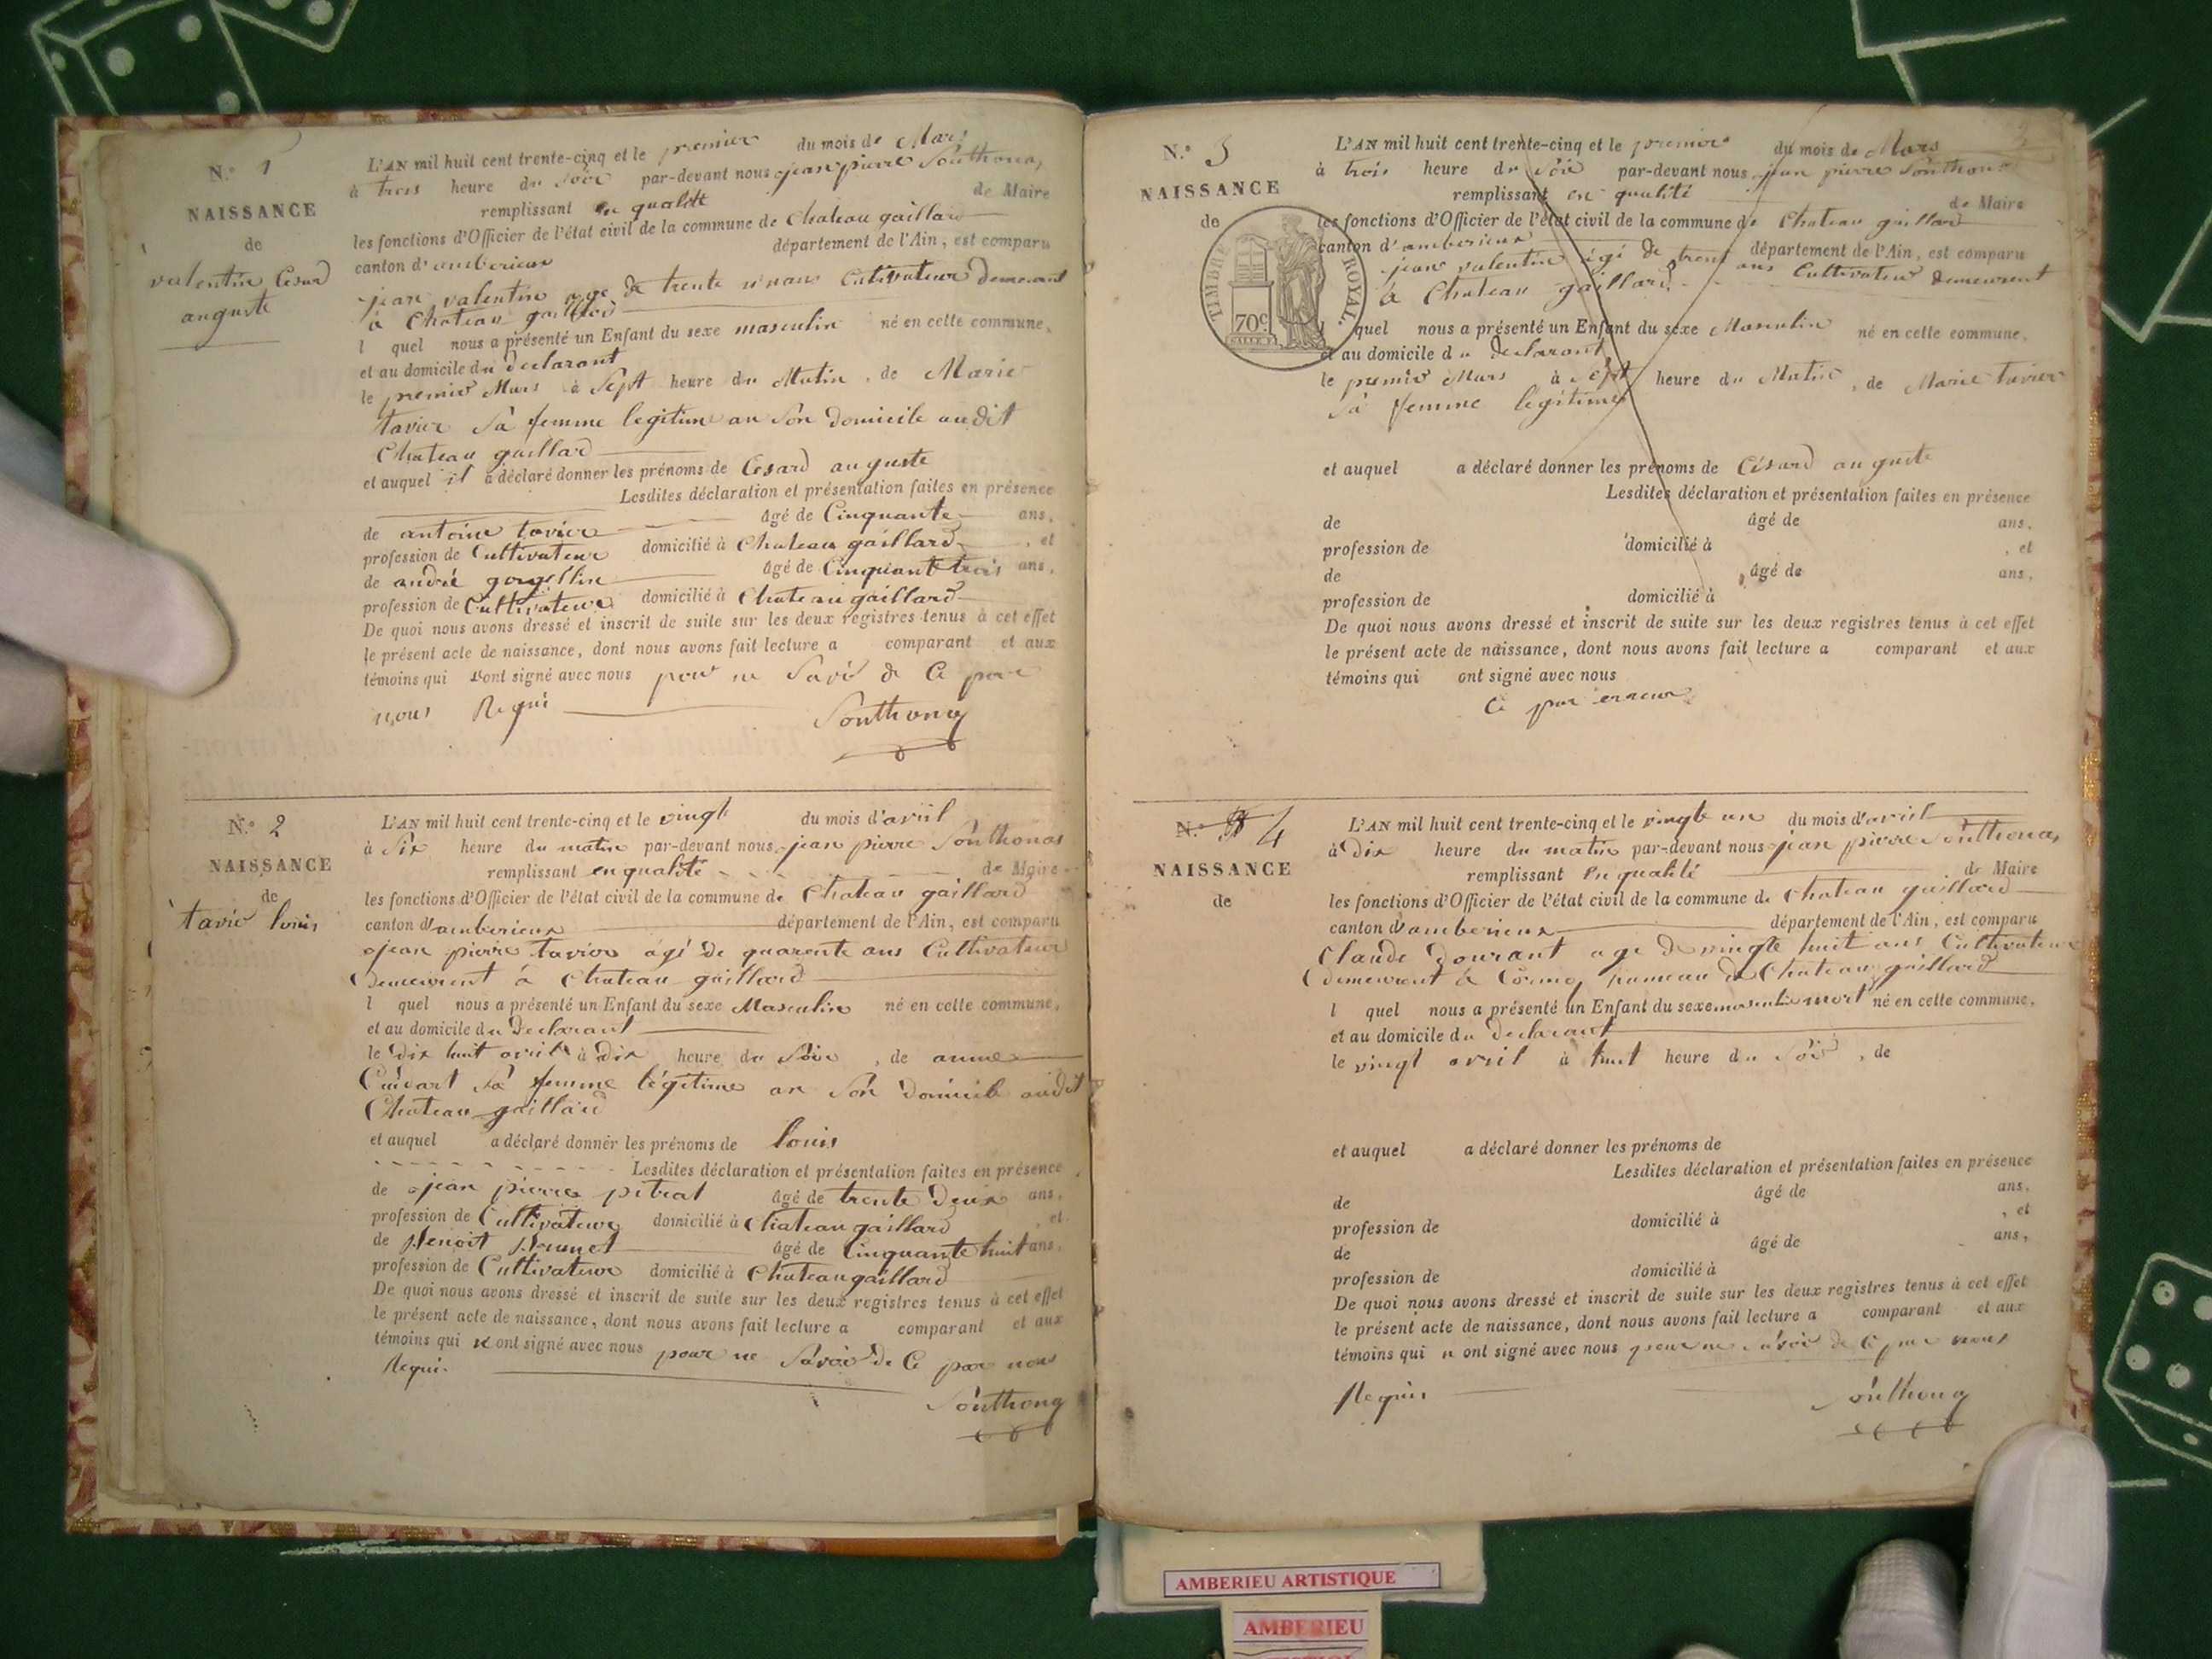 N.º 1
NAISSANCE
de
valentin Cesard
auguste
L'AN mil huit cent trente-cinq et le premier du mois de Mars
à trois heure du soir par-devant nous jean pierre Southonax
remplissant en qualité de Maire
les fonctions d'Officier de l'état civil de la commune de Chateau gaillard
canton d'amberieux département de l'Ain, est comparu
jean valentin age de trente ans Cultivateur demeurant
à Chateau gaillard
l quel nous a présenté un Enfant du sexe masculin né en cette commune,
et au domicile du declarant
le premier Mars à Sept heure du Matin, de Marie
tavier Sa femme legitime au Son domicile audit
Chateau gaillard
et auquel il a déclaré donner les prénoms de Cesard auguste
Lesdites déclaration et présentation faites en présence
de antoine tavier âgé de Cinquante ans,
profession de Cultivateur domicilié à Chateau gaillard, et
de andré âgé de Cinquante trois ans,
profession de Cultivateur domicilié à Chateau gaillard
De quoi nous avons dressé et inscrit de suite sur les deux registres tenus à cet effet
le présent acte de naissance, dont nous avons fait lecture a comparant et aux
témoins qui n'ont signé avec nous pour ne Savoir de Ce par
nous Requi
Southonax
N.º 2
NAISSANCE
de
tavier louis
L'AN mil huit cent trente-cinq et le vingt du mois d'avril
à Six heure du matin par-devant nous jean pierre Southonax
remplissant en qualité de Maire
les fonctions d'Officier de l'état civil de la commune de Chateau gaillard
canton d'amberieux département de l'Ain, est comparu
jean pierre tavier agé de quarente ans Cultivateur
Demeurent à Chateau gaillard
l quel nous a présenté un Enfant du sexe Masculin né en cette commune,
et au domicile du Declarant
le dix huit avril à dix heure du Soir, de anne
Sa femme légitime au Son domicile audit
Chateau gaillard
et auquel a déclaré donner les prénoms de louis
Lesdites déclaration et présentation faites en présence
de jean pierre petrat âgé de trente Deux ans,
profession de Cultivateur domicilié à Chateau gaillard, et
de Benoit âgé de Cinquante huit ans,
profession de Cultivateur domicilié à Chateau gaillard
De quoi nous avons dressé et inscrit de suite sur les deux registres tenus à cet effet
le présent acte de naissance, dont nous avons fait lecture a comparant et aux
témoins qui n ont signé avec nous pour ne Savoir De Ce par nous
Requi
Southonax
N.º 3
NAISSANCE
de
TIMBRE ROYAL.
70c
L'AN mil huit cent trente-cinq et le premier du mois de Mars
à trois heure du Soir par-devant nous jean pierre Southonax
remplissant en qualité de Maire
les fonctions d'Officier de l'état civil de la commune de Chateau gaillard
canton d'amberieux département de l'Ain, est comparu
jean valentin agé de trent ans Cultivateur demeurent
à Chateau gaillard
l quel nous a présenté un Enfant du sexe Masculin né en cette commune,
et au domicile du declarant
le premier Mars à Sept heure du Matin, de Marie tavier
Sa femme legitime
et auquel a déclaré donner les prénoms de Césard auguste
Lesdites déclaration et présentation faites en présence
de âgé de ans,
profession de domicilié à , et
de âgé de ans,
profession de domicilié à
De quoi nous avons dressé et inscrit de suite sur les deux registres tenus à cet effet
le présent acte de naissance, dont nous avons fait lecture a comparant et aux
témoins qui ont signé avec nous
Ce par erreur
N.º 4
NAISSANCE
de
L'AN mil huit cent trente-cinq et le vingt un du mois d'avril
à Dix heure du matin par-devant nous jean pierre Southonax
remplissant en qualité de Maire
les fonctions d'Officier de l'état civil de la commune de Chateau gaillard
canton d'amberieux département de l'Ain, est comparu
Claude Dourant age de vingt huit ans Cultivateur
demeurent à Cormoz hameau de Chateau gaillard
l quel nous a présenté un Enfant du sexe masculin mort né en cette commune,
et au domicile du declarant
le vingt avril à huit heure du Soir, de
et auquel a déclaré donner les prénoms de
Lesdites déclaration et présentation faites en présence
de âgé de ans,
profession de domicilié à , et
de âgé de ans,
profession de domicilié à
De quoi nous avons dressé et inscrit de suite sur les deux registres tenus à cet effet
le présent acte de naissance, dont nous avons fait lecture a comparant et aux
témoins qui n ont signé avec nous pour ne Savoir de Ce par nous
Requis
Southonax
AMBERIEU ARTISTIQUE
AMBERIEU